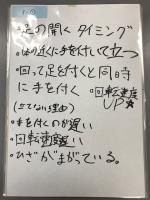 足の開くタイミング
・ぼり近くに手を付いて立つ
・回って足を付くと同時
に手を付く
・回転速度
UP☆
(立てない理由)
・手を付くのが遅い
・回転速度遅い
・ひざがまがっている。